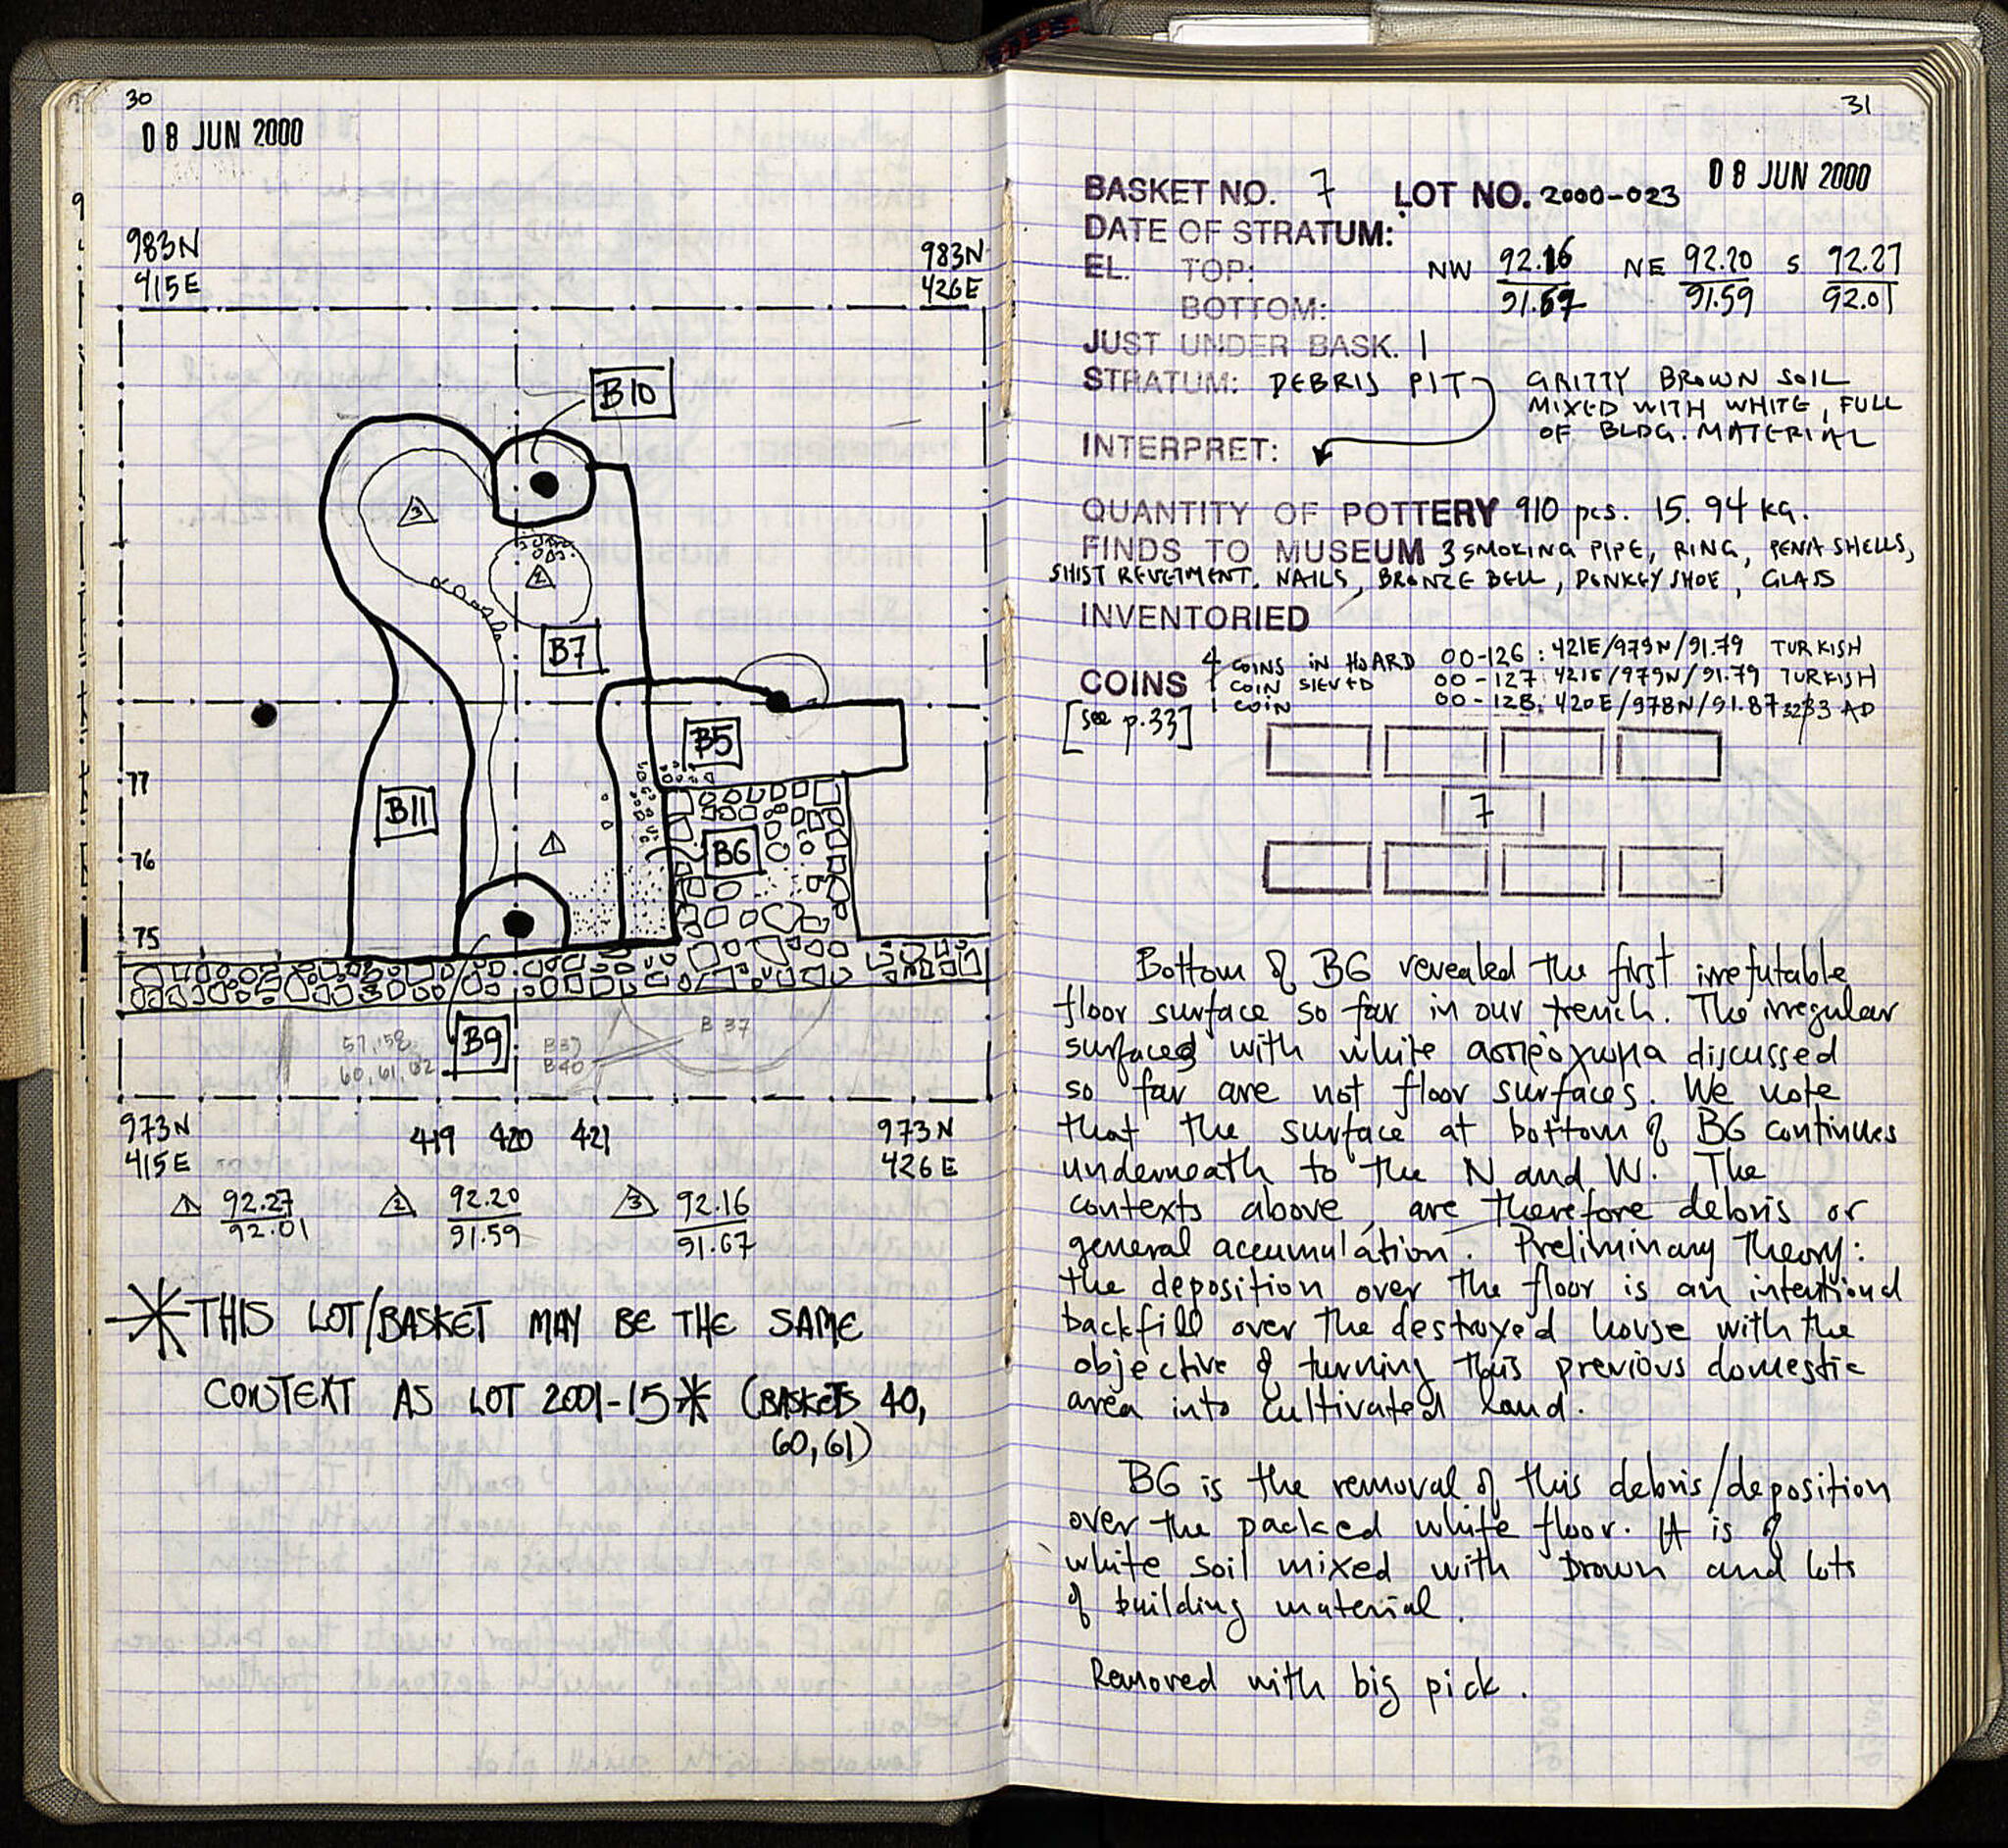 30
08 JUN 2000
9
983N
415E
983N
426E
B10
3
2
B7
B5
77
B11
1
B6
76
75
B9
57, 58,
60, 61, 62
B37
B40
B 37
973N
415E
419 420 421
973N
426E
1 92.27
92.01
2 92.20
91.59
3 92.16
91.67
* THIS LOT/BASKET MAY BE THE SAME
CONTEXT AS LOT 2001-15* (BASKETS 40,
60, 61)
31
08 JUN 2000
BASKET NO. 7 LOT NO. 2000-023
DATE OF STRATUM:
EL. TOP: NW 92.16 NE 92.20 S 92.27
BOTTOM: 91.67 91.59 92.01
JUST UNDER BASK. 1
STRATUM: DEBRIS PIT GRITTY BROWN SOIL
MIXED WITH WHITE, FULL
OF BLDG. MATERIAL
INTERPRET:
QUANTITY OF POTTERY 910 pcs. 15.94 kg.
FINDS TO MUSEUM 3 SMOKING PIPE, RING, SHELLS,
SHIST REVETMENT, NAILS, BRONZE BELL, DONKEY SHOE, GLASS
INVENTORIED
COINS 4 COINS IN HOARD 00-126 : 421E/979N/91.79 TURKISH
1 COIN SIEVED 00-127: 421E/979N/91.79 TURKISH
1 COIN 00-128: 420E/978N/91.87 AD
[see p.33]
7
Bottom of B6 revealed the first irrefutable
floor surface so far in our trench. The irregular
surfaces with white ασπρόχωμα discussed
so far are not floor surfaces. We note
that the surface at bottom of B6 continues
underneath to the N and W. The
contexts above, are therefore debris or
general accumulation. Preliminary theory:
the deposition over the floor is an intentional
backfill over the destroyed house with the
objective of turning this previous domestic
area into cultivated land.
B6 is the removal of this debris/deposition
over the packed white floor. It is of
white soil mixed with brown and lots
of building material.
Removed with big pick.